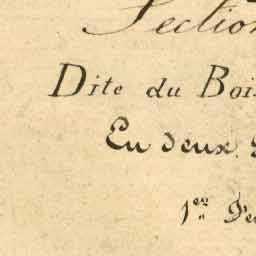 Section
Dite du Boi
En deux
1er